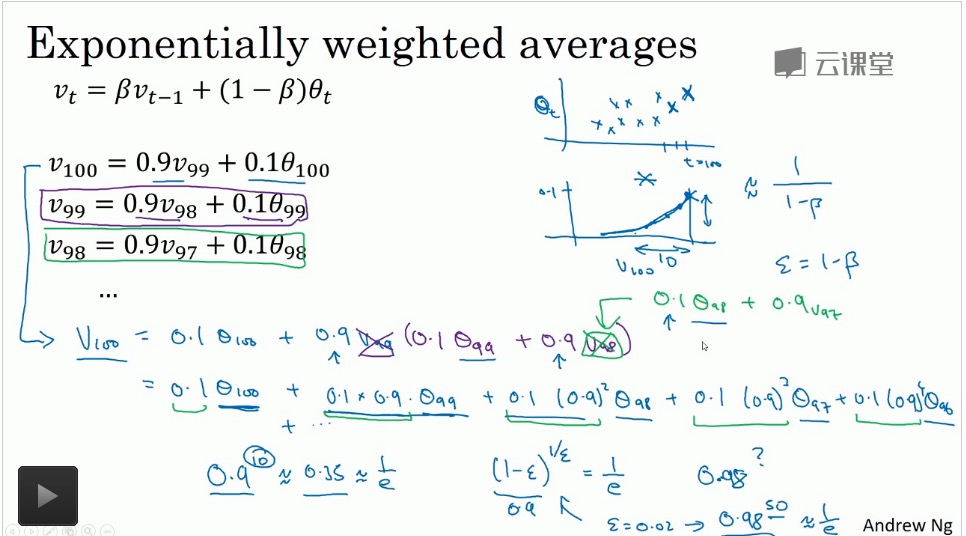 Exponentially weighted averages
云课堂
v_t = βv_{t−1} + (1 − β)θ_t
v_100 = 0.9v_99 + 0.1θ_100
v_99 = 0.9v_98 + 0.1θ_99
v_98 = 0.9v_97 + 0.1θ_98
...
θ_t
t=100
0.1
V_100
10
≈ 1/(1-β)
ε = 1-β
0.1 θ_98 + 0.9 v_97
V_100 = 0.1 θ_100 + 0.9 V_99 (0.1 θ_99 + 0.9 V_98)
= 0.1 θ_100 + 0.1 × 0.9 · θ_99 + 0.1 (0.9)^2 θ_98 + 0.1 (0.9)^3 θ_97 + 0.1 (0.9)^4 θ_96
+ ...
0.9^10 ≈ 0.35 ≈ 1/e
(1-ε)^{1/ε} = 1/e
0.9
0.98 ?
ε = 0.02 → 0.98^50 ≈ 1/e
Andrew Ng